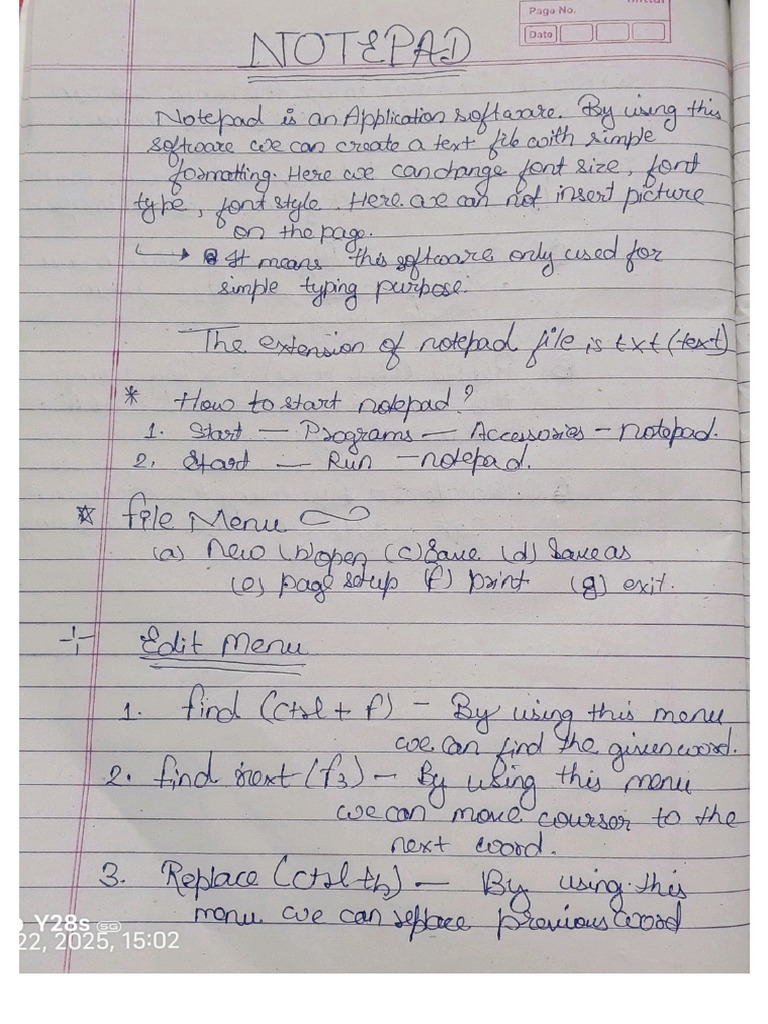 Initial
Page No.
Date
NOTEPAD
Notepad is an Application software. By using this
software we can create a text file with simple
formatting. Here we can change font size, font
type, font style. Here we can not insert picture
on the page.
→ It means this software only used for
simple typing purpose.
The extension of notepad file is txt (text)
* How to start notepad?
1. Start — Programs — Accessories — notepad.
2. Start — Run — notepad.
☆ File Menu
(a) New (b) open (c) Save (d) Save as
(e) page setup (f) print (g) exit.
Edit Menu
1. find (ctrl + f) — By using this menu
we can find the given word.
2. find next (f3) — By using this menu
we can move courser to the
next word.
3. Replace (ctrl + h) — By using this
menu we can replace previous word
Y28s 5G
22, 2025, 15:02